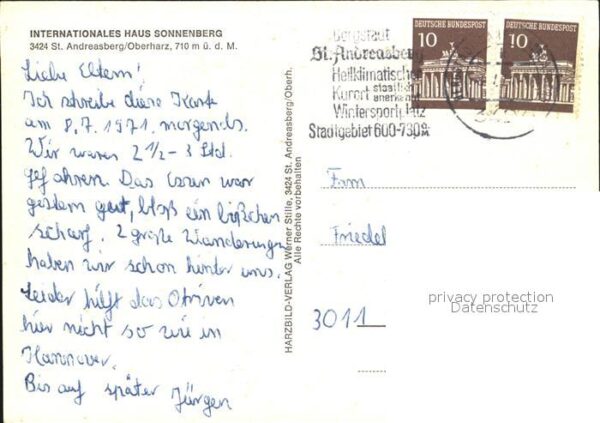 INTERNATIONALES HAUS SONNENBERG
3424 St. Andreasberg/Oberharz, 710 m ü. d. M.
Liebe Eltern!
Ich schreibe diese Karte
am 8.7.1971 morgends.
Wir waren 2 1/2 - 3 Std.
gefahren. Das Essen war
gestern gut, bloß ein bißchen
scharf. 2 große Wanderungen
haben wir schon hinter uns.
Leider hilft das
hier nicht so wie in
Hannover.
Bis auf später Jürgen
HARZBILD-VERLAG Werner Stille, 3424 St. Andreasberg/Oberh.
Alle Rechte vorbehalten
Bergstadt
St. Andreasberg
Heilklimatischer
Kurort staatlich anerkannt
Wintersportplatz
Stadtgebiet 600-730 m
DEUTSCHE BUNDESPOST
10
DEUTSCHE BUNDESPOST
10
Fam
Friedel
3011
privacy protection
Datenschutz